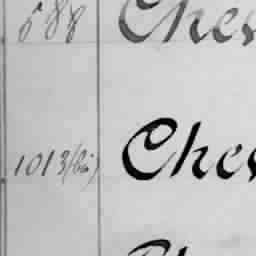 588 Chev
1013(bis) Chev